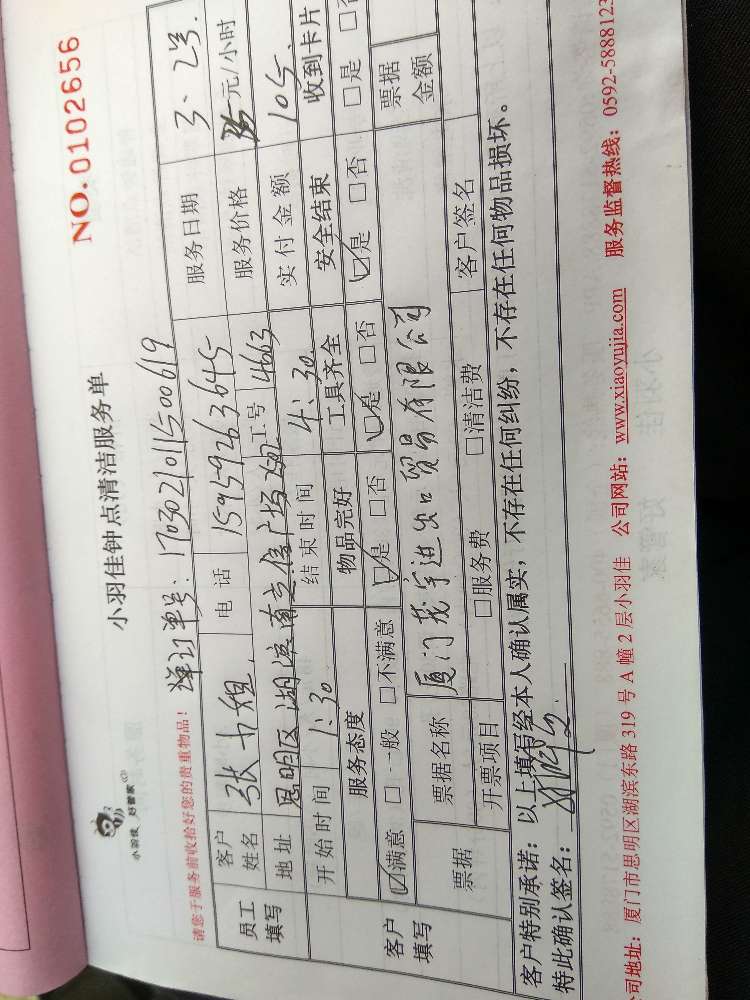 NO.0102656
小羽佳 好管家
小羽佳钟点清洁服务单
请您于服务前收拾好您的贵重物品! 单号: 170302101500619
员工填写 客户姓名 张小姐 电话 15959263645 服务日期 3、2号
地址 思明区湖滨南 广场 工号 4663 服务价格 元/小时
开始时间 1:30 结束时间 4:30 实付金额 105
客户填写 服务态度 物品完好 工具齐全 安全结束 收到卡片
☑满意 □一般 □不满意 ☑是 □否 ☑是 □否 ☑是 □否 □是
票据 票据名称 厦门茂宇进出口贸易有限公司 票据金额
开票项目 □服务费 □清洁费 客户签名
客户特别承诺: 以上填写经本人确认属实, 不存在任何纠纷, 不存在任何物品损坏。
特此确认签名:
公司地址: 厦门市思明区湖滨东路 319 号 A 幢 2 层小羽佳 公司网站: www.xiaoyujia.com 服务监督热线: 0592-5888123